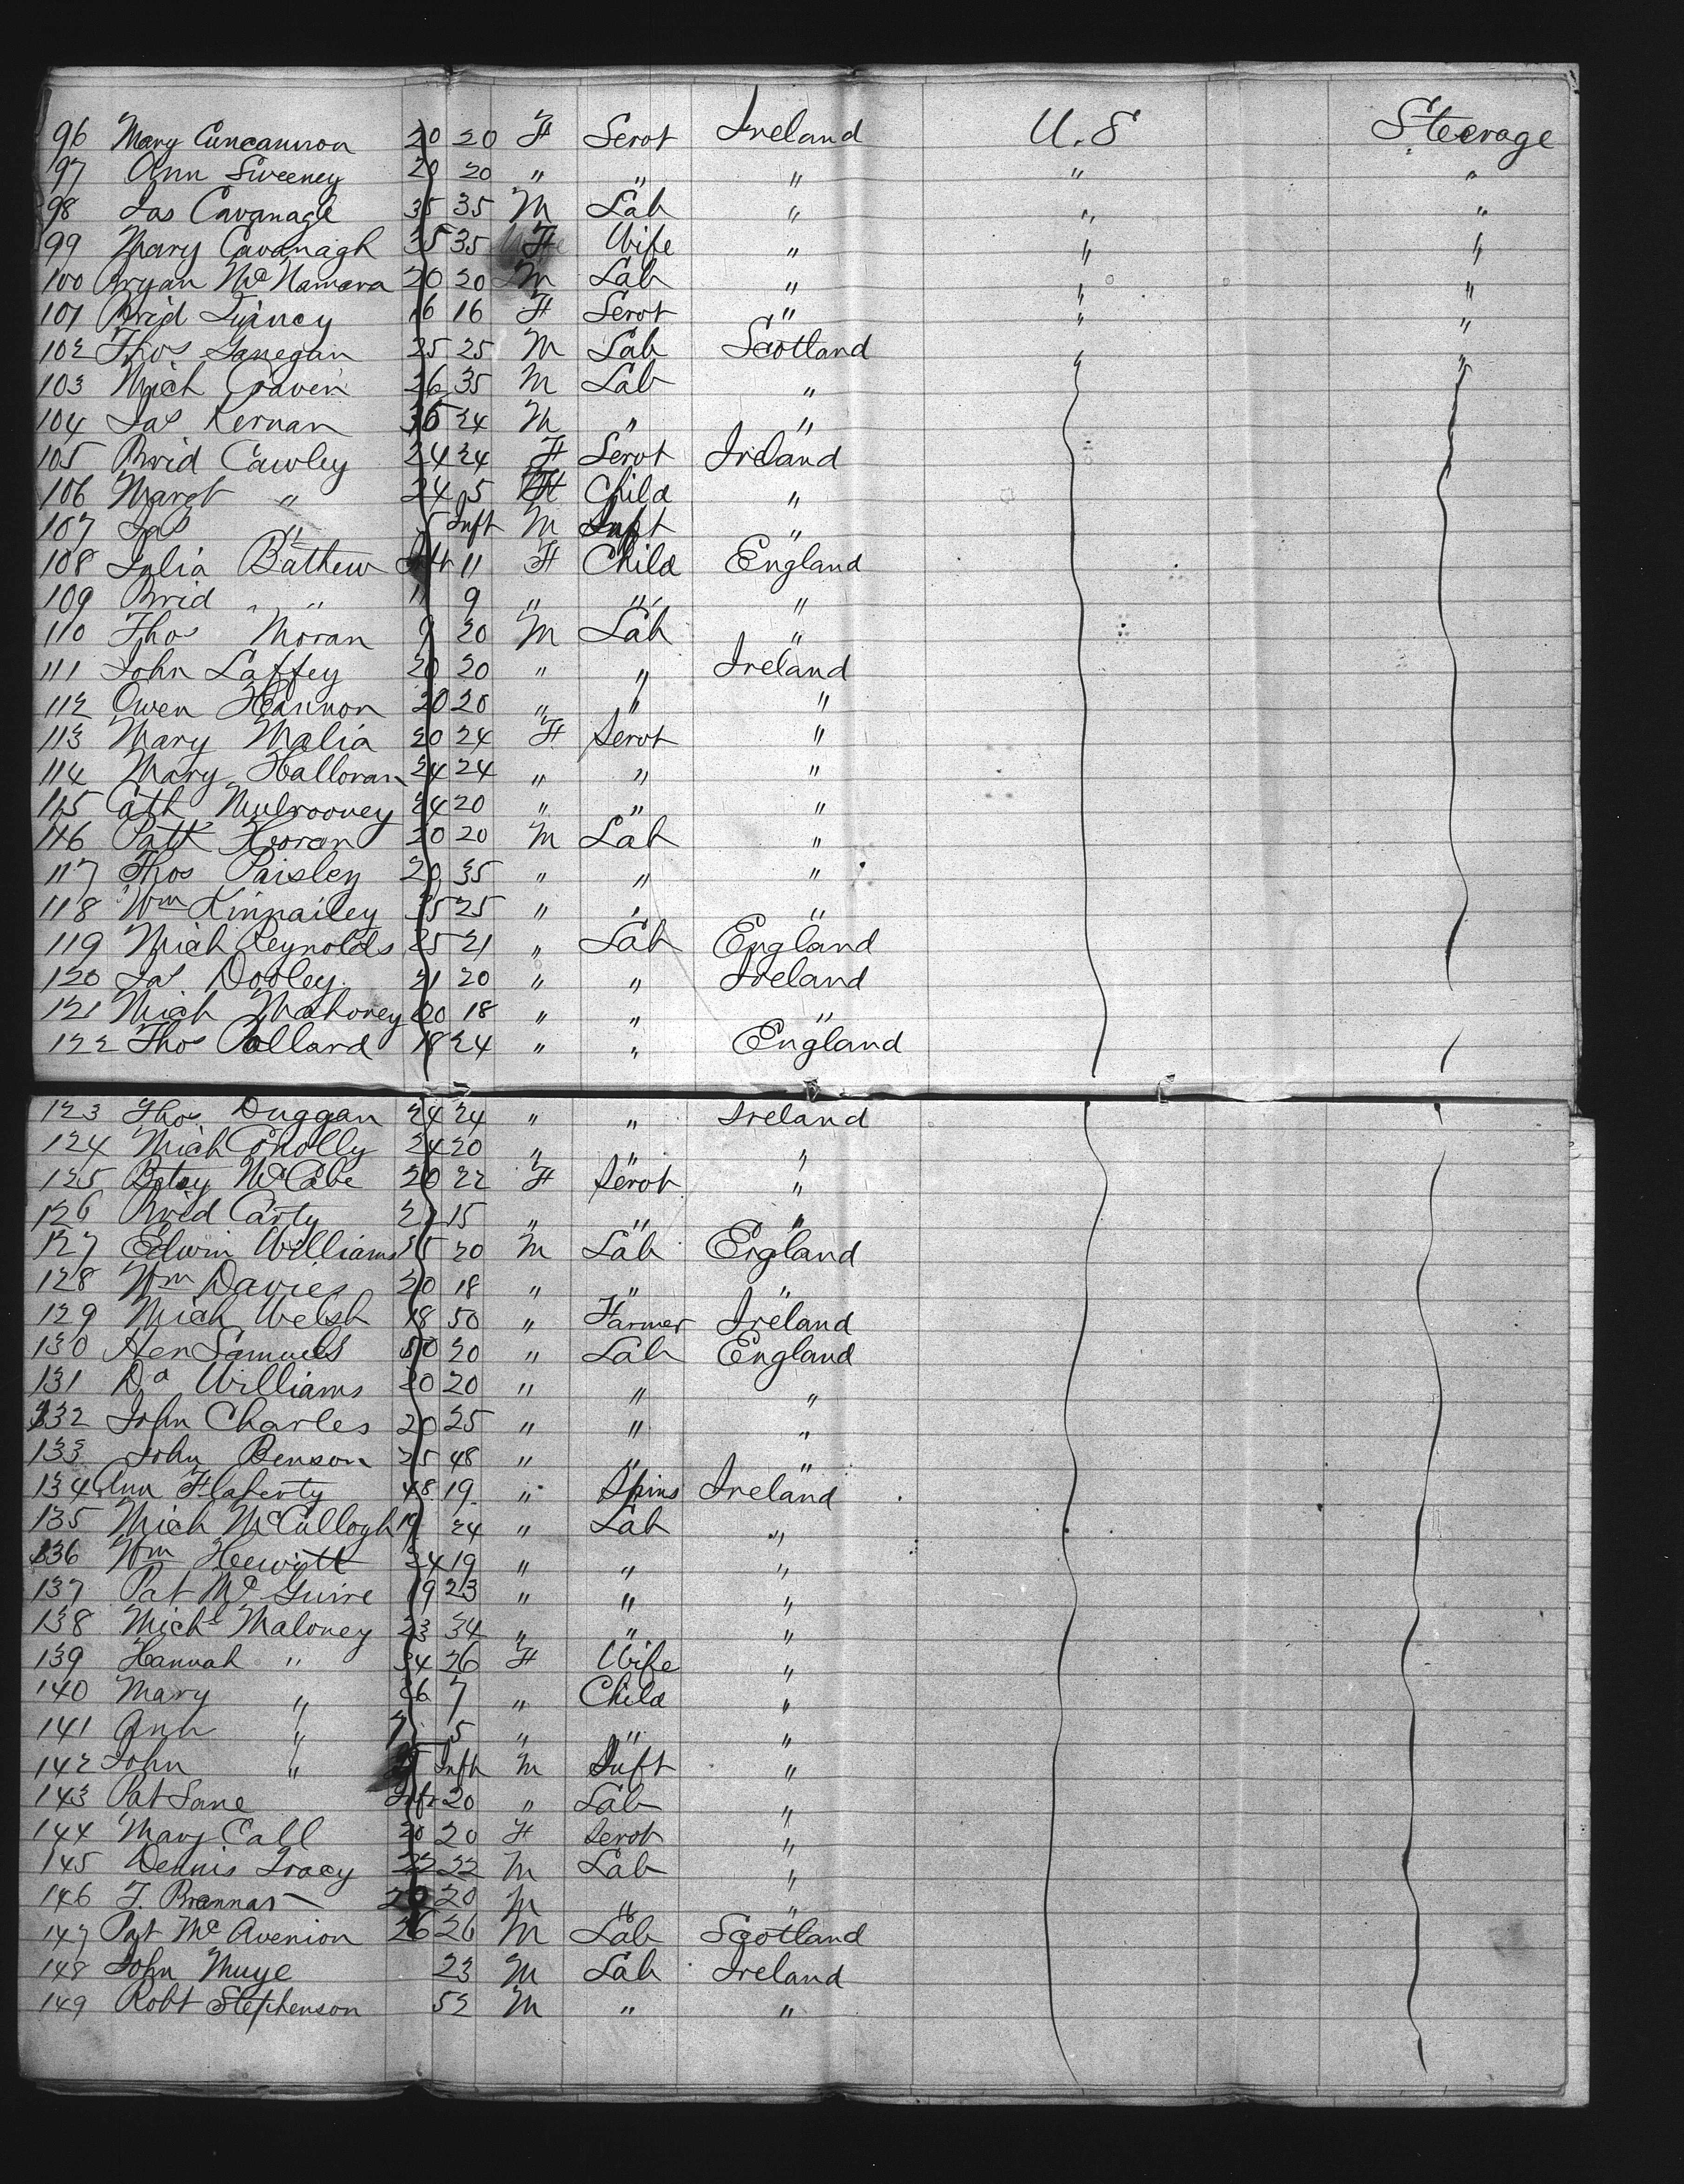 96 Mary Cuncannon 20 20 F Servt Ireland U.S Steerage
97 Ann Sweeney 20 20 " " " " "
98 Jas Cavanagh 35 35 M Lab " " "
99 Mary Cavanagh 35 35 F Wife " " "
100 Bryan McNamara 20 20 M Lab " " "
101 Brid 16 16 F Servt " " "
102 Thos Ganegan 25 25 M Lab Scotland " "
103 Mich Craven 26 35 M Lab "
104 Jas Kernan 35 24 M " "
105 Brid Cawley 24 24 F Servt Ireland
106 Margt " 24 5 F Child "
107 Jas " 5 Inft M Inft "
108 Julia Bathew Inft 11 F Child England
109 Brid " 11 9 " " "
110 Thos Moran 9 20 M Lab "
111 John Laffey 20 20 " " Ireland
112 Owen Hannon 20 20 " " "
113 Mary Malia 20 24 F Servt "
114 Mary Halloran 24 24 " " "
115 Cath Mulrooney 24 20 " " "
116 Patk Horan 20 20 M Lab "
117 Thos Paisley 20 35 " " "
118 Wm Kinnailey 35 25 " " "
119 Mich Reynolds 25 21 " Lab England
120 Jas Dooley 21 20 " " Ireland
121 Mich Mahoney 20 18 " " "
122 Thos Pollard 18 24 " " England
123 Thos Duggan 24 24 " " Ireland
124 Mich Conolly 24 20 " " "
125 Betsy McCabe 20 22 F Servt "
126 Brid Carty 22 15 " " "
127 Edwin Williams 15 20 M Lab England
128 Wm Davies 20 18 " " "
129 Mich Welsh 18 50 " Farmer Ireland
130 Hen Samuels 50 20 " Lab England
131 Da Williams 20 20 " " "
132 John Charles 20 25 " " "
133 John Benson 25 48 " " "
134 Ann Flaherty 48 19 " Spins Ireland
135 Mich McCullogh 19 24 " Lab "
136 Wm Hewitt 24 19 " " "
137 Pat McGuire 19 23 " " "
138 Michl Maloney 23 34 " " "
139 Hannah " 34 26 F Wife "
140 Mary " 26 7 " Child "
141 Ann " 7 5 " " "
142 John " 5 Inft M Inft "
143 Pat Lane Inft 20 " Lab "
144 Mary Call 20 20 F Servt "
145 Dennis Tracy 22 22 M Lab "
146 T. Brannan 20 20 M " "
147 Pat McAvenion 26 26 M Lab Scotland
148 John Muye 23 M Lab Ireland
149 Robt Stephenson 52 M " "